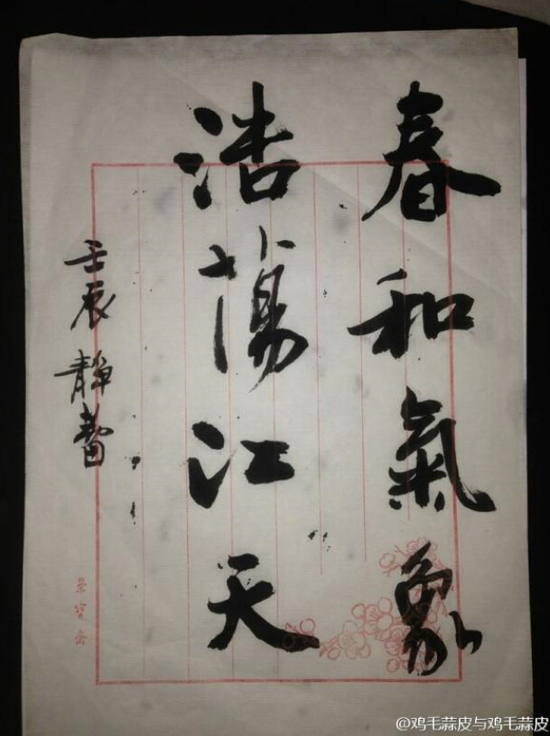 春和氣象
浩蕩江天
壬辰 靜書
荣宝斋
@鸡毛蒜皮与鸡毛蒜皮